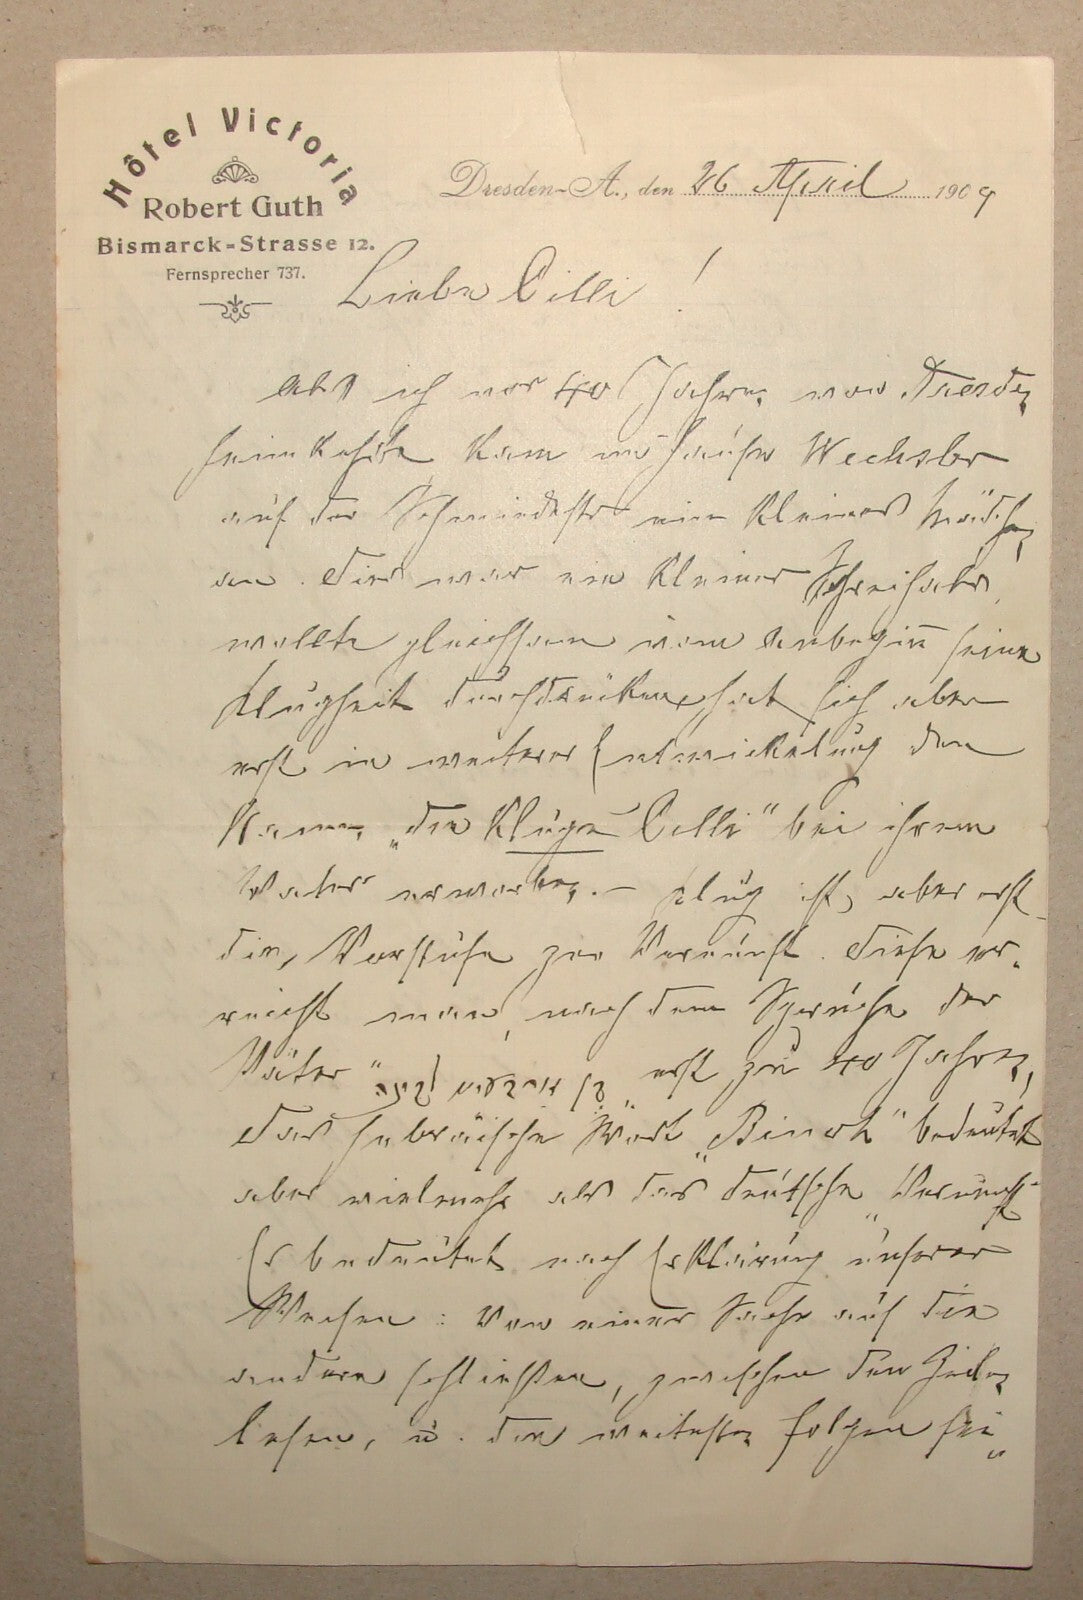 Hôtel Victoria
Robert Guth
Bismarck-Strasse 12.
Fernsprecher 737.
Dresden-A., den 26 April 1909
Liebe Cilli!
Als ich vor 40 Jahren von Dresden
heimkehrte kam im Hause Wechsler
auf der Schmiedestr ein kleines Mädchen
an. Dies war ein kleiner Schreihals,
wollte gleichsam vom Anbeginn seine
Klugheit durchdrücken, hat sich aber
erst in weiterer Entwickelung den
Namen „die kluge Cilli" bei ihrem
Vater erworben. — Klug ist aber erst
die Vorstufe zur Vernunft. Diese er-
reicht man, nach dem Spruche der
Väter „בן ארבעים לבינה" erst zu 40 Jahren,
Das hebräische Wort „Binah" bedeutet
aber vielmehr als das deutsche „Vernunft"
Es bedeutet nach Erklärung unserer
Weisen: Von einer Sache auf die
andere schließen, zwischen den Zeilen
lesen, u. die weitesten Folgen